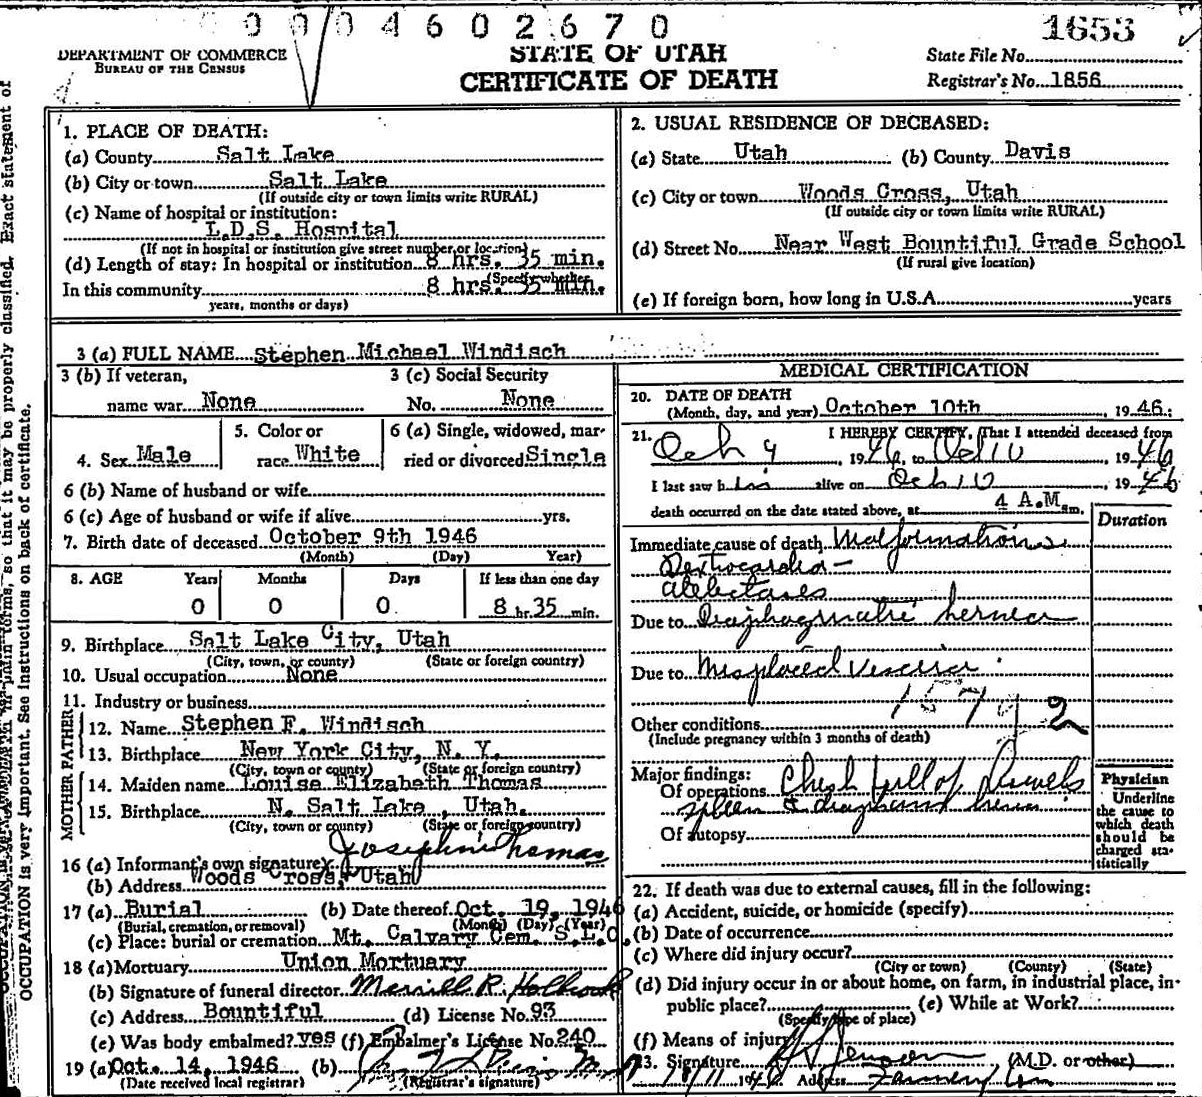 0 0 0 4 6 0 2 6 7 0
1653
DEPARTMENT OF COMMERCE
BUREAU OF THE CENSUS
STATE OF UTAH
CERTIFICATE OF DEATH
State File No.
Registrar's No. 1856
1. PLACE OF DEATH:
(a) County Salt Lake
(b) City or town Salt Lake
(If outside city or town limits write RURAL)
(c) Name of hospital or institution:
L.D.S. Hospital
(If not in hospital or institution give street number or location)
(d) Length of stay: In hospital or institution 8 hrs. 35 min.
(Specify whether
In this community 8 hrs. 35 min.
years, months or days)
2. USUAL RESIDENCE OF DECEASED:
(a) State Utah (b) County Davis
(c) City or town Woods Cross, Utah
(If outside city or town limits write RURAL)
(d) Street No. Near West Bountiful Grade School
(If rural give location)
(e) If foreign born, how long in U.S.A. years
3 (a) FULL NAME Stephen Michael Windisch
3 (b) If veteran,
name war None
3 (c) Social Security
No. None
4. Sex Male
5. Color or
race White
6 (a) Single, widowed, mar-
ried or divorced Single
6 (b) Name of husband or wife
6 (c) Age of husband or wife if alive yrs.
7. Birth date of deceased October 9th 1946
(Month) (Day) Year)
8. AGE Years Months Days If less than one day
0 0 0 8 hr. 35 min.
9. Birthplace Salt Lake City, Utah
(City, town, or county) (State or foreign country)
10. Usual occupation None
11. Industry or business
FATHER
12. Name Stephen F. Windisch
13. Birthplace New York City, N. Y.
(City, town or county) (State or foreign country)
MOTHER
14. Maiden name Louise Elizabeth Thomas
15. Birthplace N. Salt Lake, Utah.
(City, town or county) (State or foreign country)
16 (a) Informant's own signature Josephine Thomas
(b) Address Woods Cross, Utah
17 (a) Burial (b) Date thereof Oct. 19, 1946
(Burial, cremation, or removal) (Month) (Day) (Year)
(c) Place: burial or cremation Mt. Calvary Cem. S.L.C.
18 (a) Mortuary Union Mortuary
(b) Signature of funeral director Merrill R. Holbrook
(c) Address Bountiful (d) License No. 93
(e) Was body embalmed? yes (f) Embalmer's License No. 240
19 (a) Oct. 14, 1946 (b)
(Date received local registrar) (Registrar's signature)
MEDICAL CERTIFICATION
20. DATE OF DEATH
(Month, day, and year) October 10th, 1946:
21. I HEREBY CERTIFY, That I attended deceased from
Oct 9, 1946, to Oct 10, 1946
I last saw h im alive on Oct 10, 1946
death occurred on the date stated above, at 4 A.M. m.
Duration
Immediate cause of death Malformations
Dextrocardia -
Atelectases
Due to Diaphragmatic hernia
Due to Misplaced Viscera
157 g 2
Other conditions
(Include pregnancy within 3 months of death)
Major findings:
Of operations Chest full of bowels
spleen & diaphragm hernia
Of autopsy
Physician
Underline
the cause to
which death
should be
charged sta-
tistically
22. If death was due to external causes, fill in the following:
(a) Accident, suicide, or homicide (specify)
(b) Date of occurrence
(c) Where did injury occur?
(City or town) (County) (State)
(d) Did injury occur in or about home, on farm, in industrial place, in
public place? (e) While at Work?
(Specify type of place)
(f) Means of injury
23. Signature (M.D. or other)
Address
Exact statement of
so that it may be properly classified.
OCCUPATION is very important. See instructions on back of certificate.